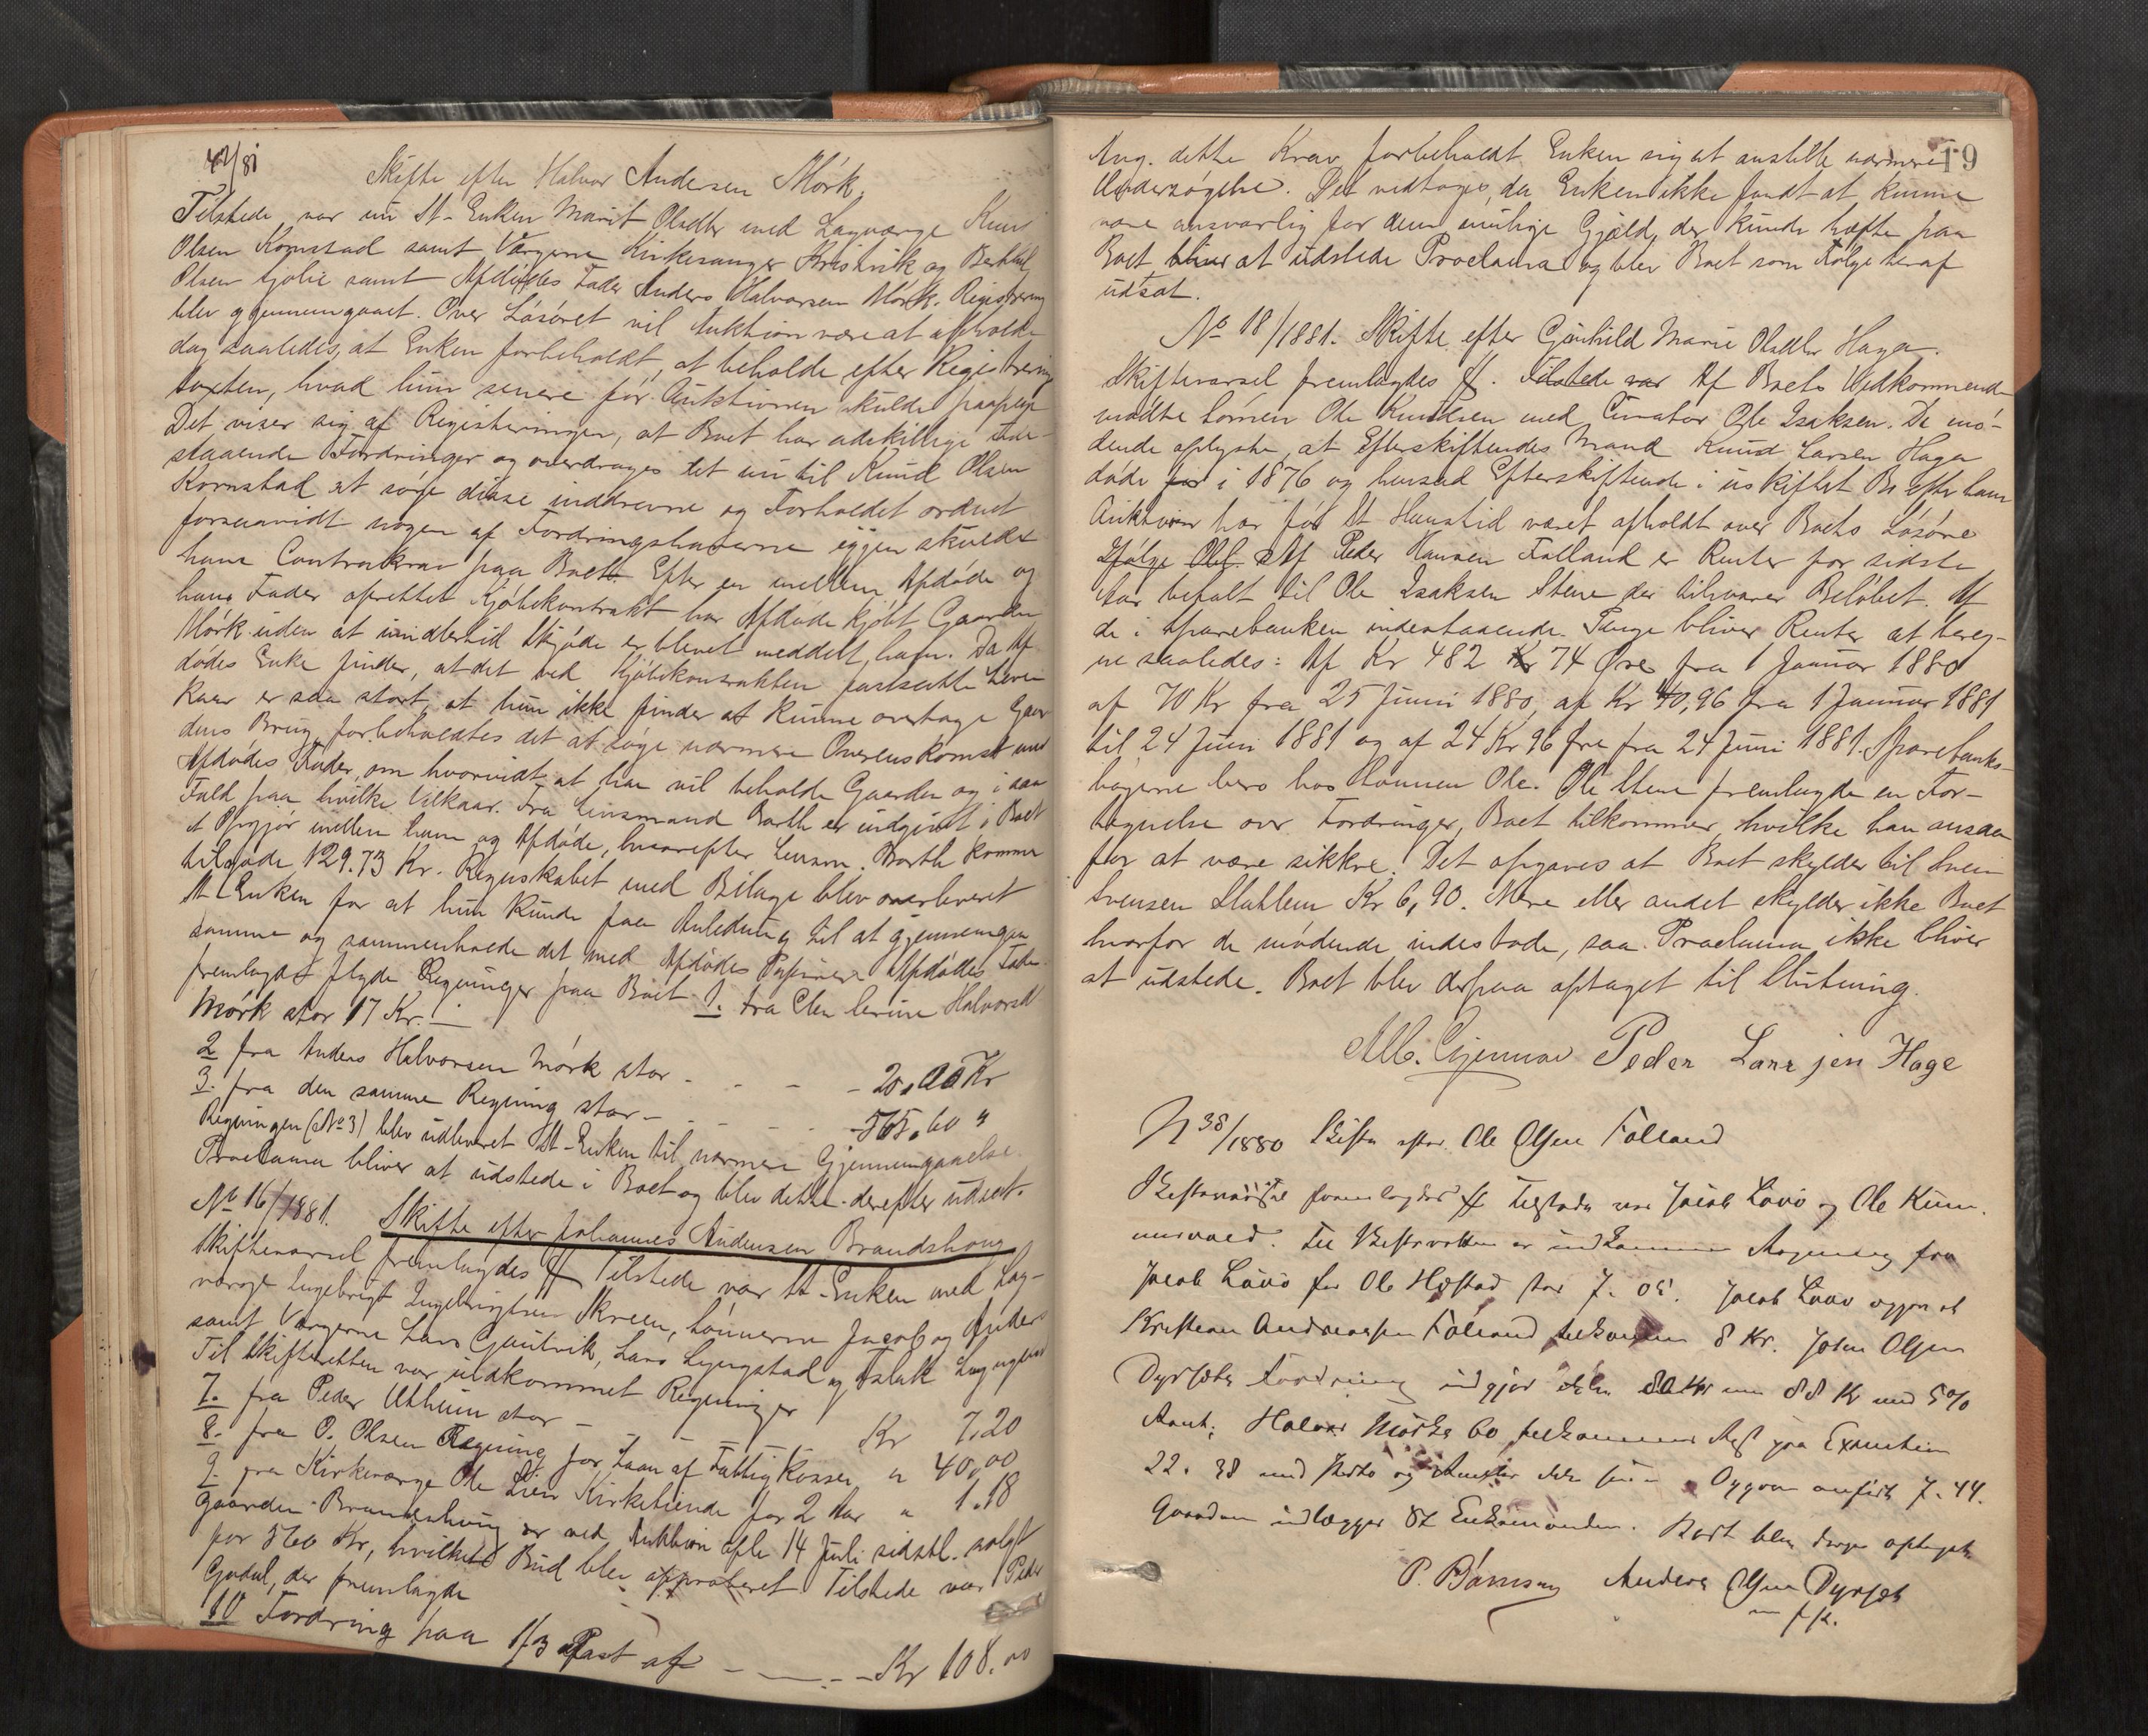 42/81
Skifte efter Halvor Andersen Mörk.
Tilstede var nu St-Enken Marit Olsdtr med Lagværge Knud
Olsen Kornstad samt Værgerne Kirkesanger Kristvik og Berthel
Olsen Golie samt Afdödes Fader Anders Halvorsen Mörk. Registrering
blev gjennemgaaet. Over Lösöret vil Auktion være at afholde
dog saaledes, at Enken forbeholdt, at beholde efter Registrerings
taxten, hvad hun senere för Auktionen skulde paapege
Det viser sig af Registeringen, at Boet har adskillige ude-
staaende Fordringer og overdroges det nu til Knud Olsen
Kornstad at söge disse inddrevne og Forholdet ordnet
forsaavidt nogen af Fordringshaverne igjen skulde
have Contrakrav paa Boet. Efter en mellem Afdöde og
hans Fader oprettet Kjöbekontrakt har Afdöde kjöbt Gaarden
Mörk uden at imidlertid Skjöde er blevet meddelt ham. Da Af
dödes Enke finder, at det ved Kjöbekontrakten fastsatte Livs
kaar er saa stort, at hun ikke finder at kunne overtage Gaar
dens Brug, forbeholdtes det at söge nærmere Overenskomst med
Afdödes Fader, om hvorvidt at han vil beholde Gaarden og i saa
Fald paa hvilke Vilkaar. Fra Lensmand Barth er indgivet i Boet
et Opgjör mellem ham og Afdöde, hvorefter Lensm. Barth kommer
tilgode 129.73 Kr. Regnskabet med Bilage blev overleveret
St-Enken for at hun kunde faa Anledning til at gjennemgaa
samme og sammenholde det med Afdödes Papirer. Afdödes Fader
fremlagde flgde Regninger paa Boet 1. fra Elen Serine Halvorsdt
Mörk stor 17 Kr. —
2 fra Anders Halvorsen Mörk stor - - - - 20,00 Kr
3. fra den samme Regning stor - - - - 565.60 "
Regningen (No 3) blev udleveret St-Enken til nærmere Gjennemgaaelse.
Proclama bliver at udstede i Boet og blev dette derefter udsat.
No 16/1881. Skifte efter Johannes Andersen Brandshoug
Skiftevarsel fremlagdes ff Tilstede var St-Enken med Lag-
værge Ingebrigt Ingebrigtsen Skreen, Sönnerne Jacob og Anders
samt Værgerne Lars Gautvik, Lars Lyngstad og Aslak
Til Skifteretten var indkommet Regninger
7. fra Peder Utheim stor - - - Kr 7.20
8. fra O. Olsen Regning for Laan af Fattigkassen " 40,00
9. fra Kirkeværge Ole Lien Kirketiende for 2 Aar " 1.18
Gaarden Brandshoug er ved Auktion afh. 14 Juli sidstl. solgt
for 560 Kr, hvilket Bud blev approberet Tilstede var Peder
Gudal, der fremlagde
10 Fordring paa 1/3 Part af - — . - - Kr 108.00
19
Ang. dette Krav forbeholdt Enken sig at anstille nærmere
Undersögelse. Det vedtoges, da Enken ikke fandt at kunne
være ansvarlig for den mulige Gjæld, der kunde hæfte paa
Boet at udstede Proclama og blev Boet som Fölge heraf
udsat.
No 18/1881. Skifte efter Gjertrud Marie Olsdtr Haga.
Skiftevarsel fremlagdes ff. Tilstede var Af Boets Vedkommende
mödte Sönnen Ole Knudsen med Curator Ole Isaksen. De mö-
dende oplyste, at Efterskiftendes Mand Knud Larsen Haga
döde i 1876 og hensad Efterskiftende i uskiftet Bo efter ham
Auktion har för St Hanstid været afholdt over Boets Lösöre
Ifölge Obl. Af Peder Hansen Folland er Renter for sidste
Aar betalt til Ole Isaksen Stene der tilsvarer Belöbet. Af
de i Sparebanken indestaaende Penge bliver Renter at bereg-
ne saaledes: Af Kr 482 74 Øre fra 1 Januar 1880
af 70 Kr fra 25 Juni 1880, af Kr 40,96 fra 1 Januar 1881
til 24 Juni 1881 og af 24 Kr 96 Øre fra 24 Juni 1881. Sparebanks-
bögerne bero hos Sönnen Ole. Ole Stene fremlagde en For-
tegnelse over Fordringer, Boet tilkommer, hvilke han ansaa
for at være sikkre. Det opgaves at Boet skylder til Sven
Svensen Stahlem Kr 6,90. Mere eller andet skylder ikke Boet
hvorfor de mödende indestode, saa Proclama ikke bliver
at udstede. Boet blev derpaa optaget til Slutning.
Peder Larsen Hage
N 38/1880 Skifte efter Ole Olsen Folland
Skiftevarsel fremlagdes ff Tilstede var Jacob Lövö og Ole
Til Skifteretten er indkommen Regning fra
Jacob Lövö for Ole Höstad stor 7.05. Jacob Lövö opgav at
Kristian Andreassen Folland tilkommer 8 Kr. John Olsen
Dyrsets Fordring udgjør ikke 80 Kr men 88 Kr med 5%
Rent; Halvor Mörks Bo tilkommer Rest paa Execution
22.38 Opgave anfört 7.44.
Gaarden udlægges St Enkemanden. Boet blev derpaa optaget.
Anders Olsen Dyrset
m f P.